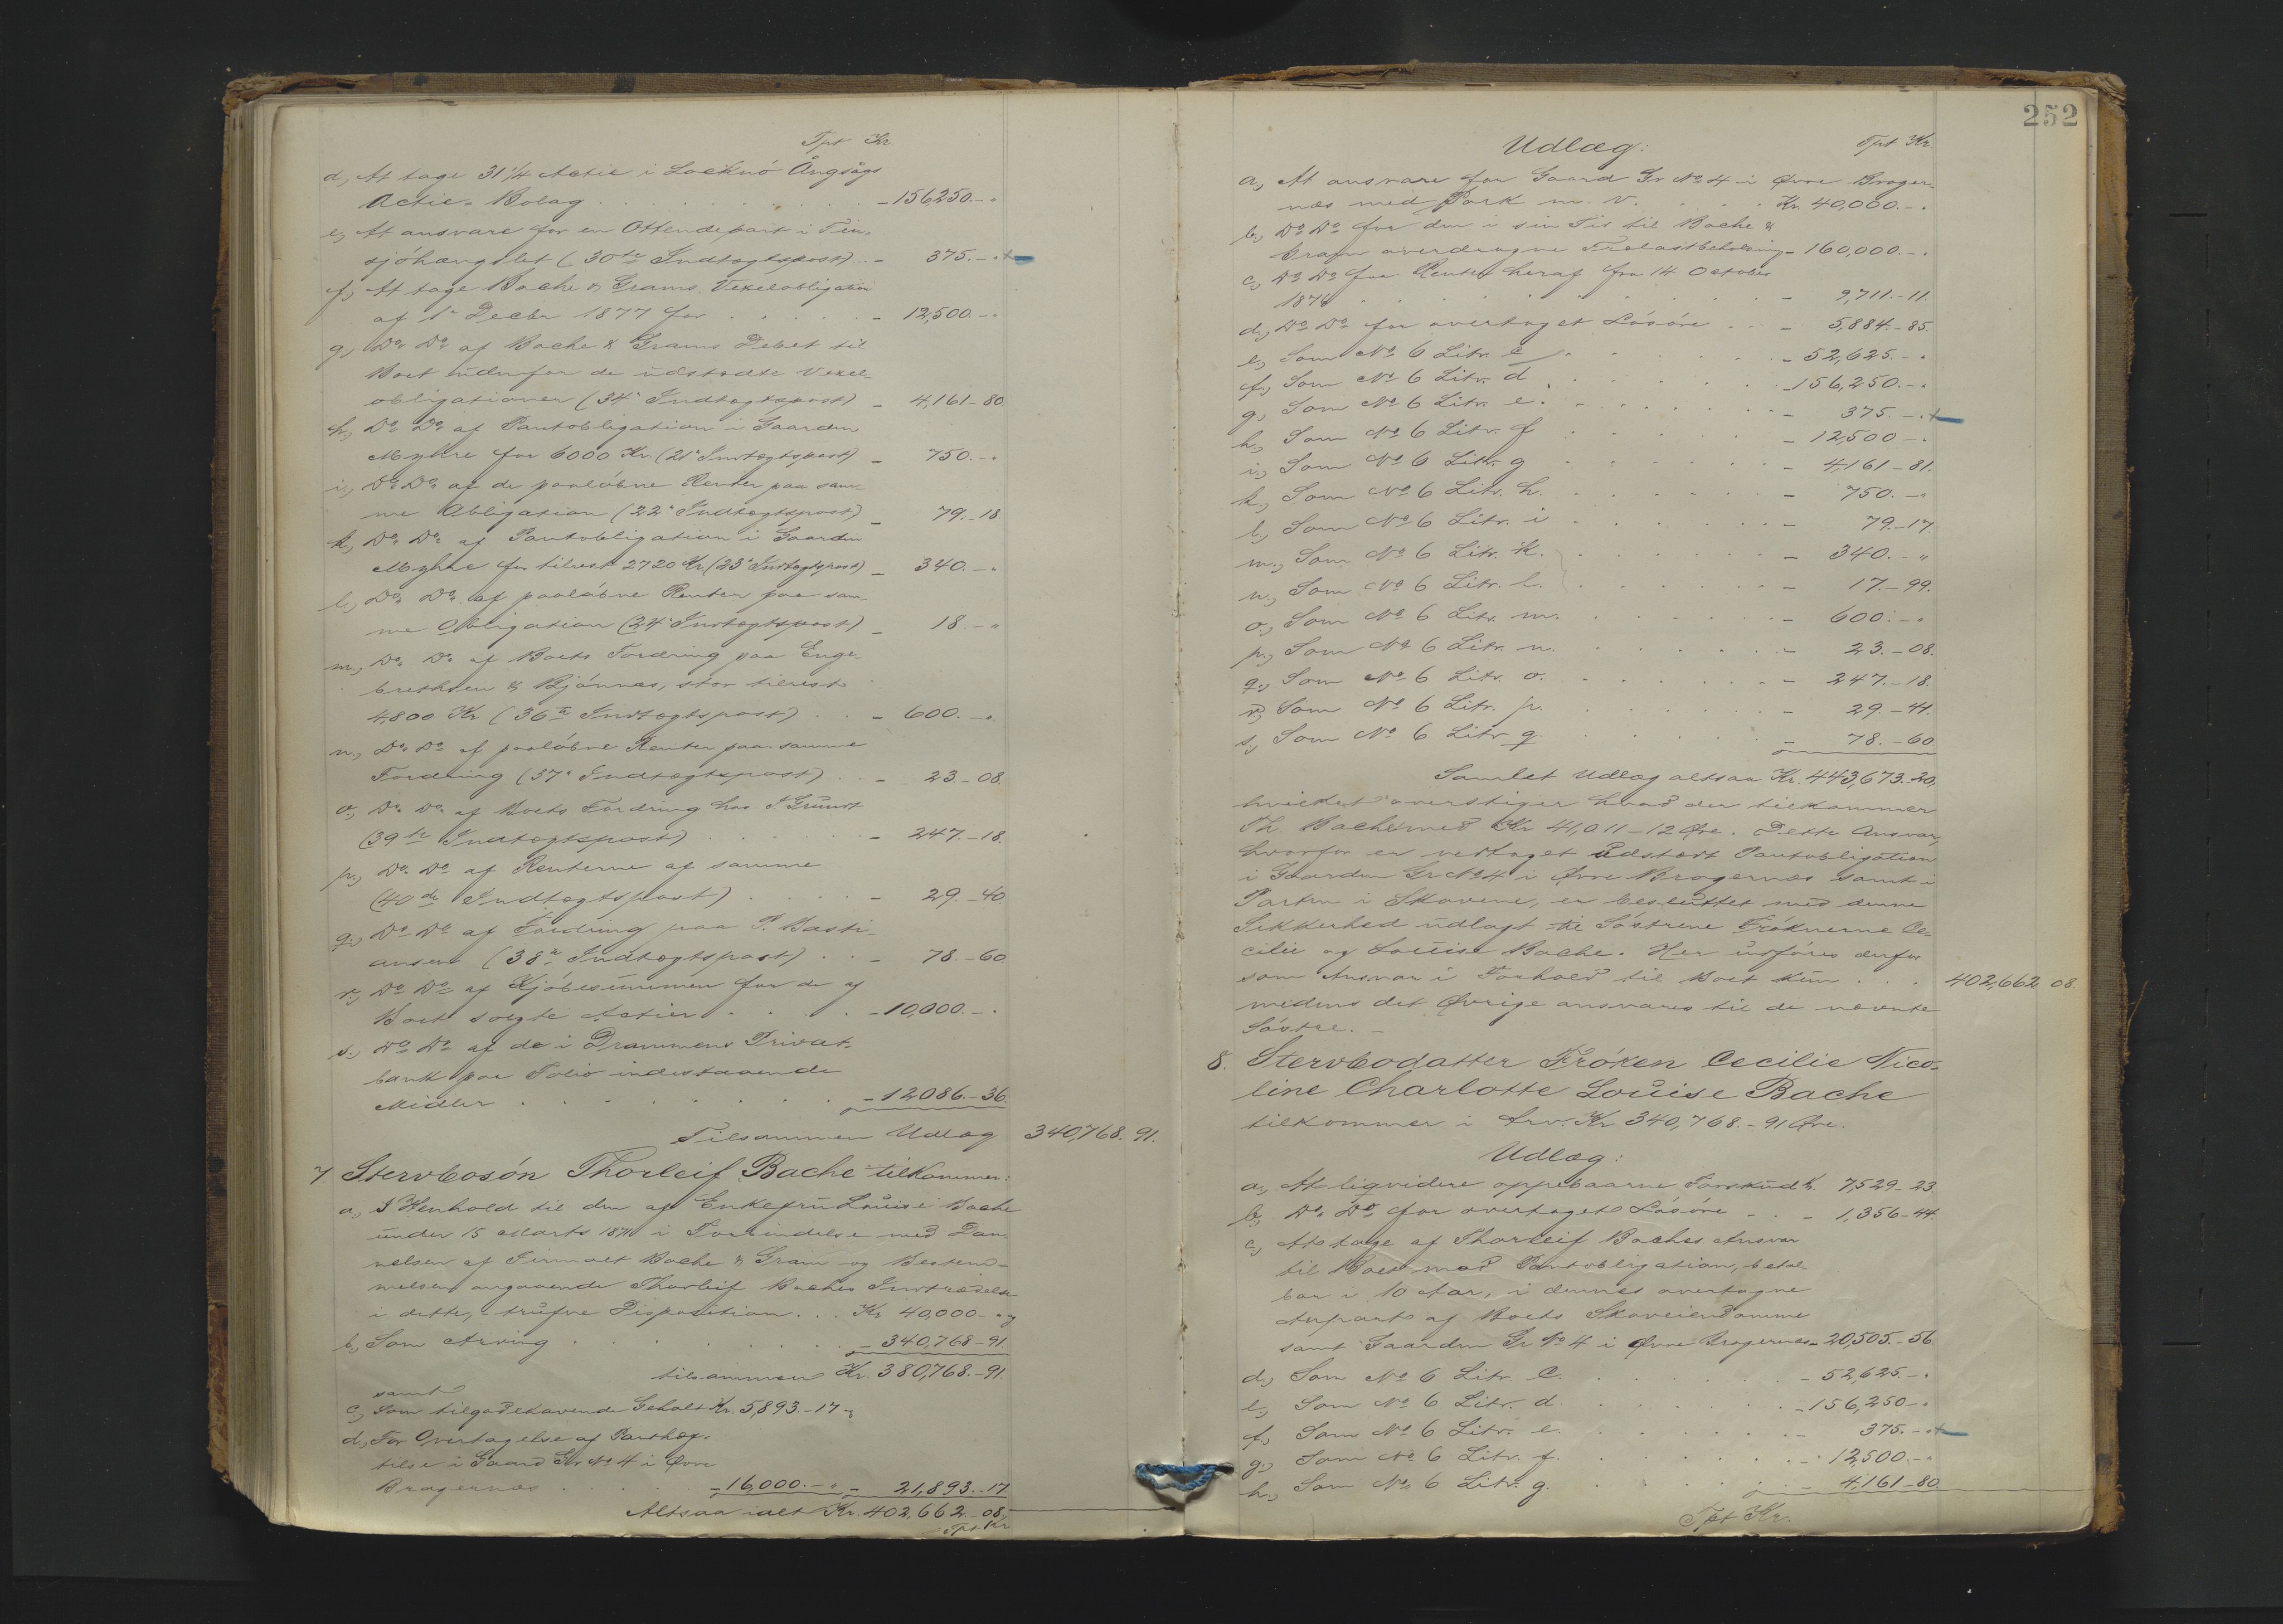 Tpt Kr.
d, At tage 31 1/4 Actie i Locknö Ångsågs
Actie-Bolag . . . - 156,250.-"
e, At ansvare for en Ottendepart i Tin-
sjöhængslet (30te Indtægtspost) . - 375.-"+
f, At tage Bache & Grams Vexelobligation
af 1e Decbr 1877 for . . . - 12,500.-"
g, Do Do af Bache & Grams Debet til
Boet udenfor de udstedte Vexel-
obligationer (34e Indtægtspost) - 4,161-80.
h, Do Do af Pantobligation i Gaarden
Myhre for 6000 Kr. (21e Indtægtspost) - 750.-"
i, Do Do af de paaløbne Renter paa sam-
me Obligation (22e Indtægtspost) - 79.-18.
k, Do Do af Pantobligation i Gaarden
Myhre for tilrest 2720 Kr. (23e Indtægtspost) - 340.-"
l, Do Do af paaløbne Renter paa sam-
me Obligation (24e Indtægtspost) - 18.-"
m, Do Do af Boets Fordring paa Enge-
brethsen & Bjönnes, stor tilrest
4,800 Kr (36te Indtægtspost) . . - 600.-"
n, Do Do af paaløbne Renter paa samme
Fordring (37e Indtægtspost) . . - 23.-08.
o, Do Do af Boets Fordring hos
(39te Indtægtspost) . . . - 247.-18.
p, Do Do af Renterne af samme
(40de Indtægtspost) . . . - 29.-40
q, Do Do af Fordring paa P. Basti-
ansen (38te Indtægtspost) . . - 78.-60
r, Do Do af Kjøbesummen for de af
Boet solgte Actier . . . - 10,000.-"
s, Do Do af de i Drammens Privat-
bank paa Folio indestaaende
Midler . . . - 12086.-36.
Tilsammen Udlæg 340,768.91.
7 Stervbosøn Thorleif Bache tilkommer:
a, I Henhold til den af Enkefru Louise Bache
under 15 Marts 1871 i Forbindelse med Dan-
nelsen af Firmaet Bache & Gram og Bestem-
melsen angaaende Thorleif Baches Indtrædelse
i dette, trufne Disposition . . . Kr 40,000-" og
b, Som Arving . . . - 340,768-91
tilsammen Kr. 380,768.-91.
samt
c, Som tilgodehavende Gehalt Kr. 5,893.-17
d, For Overtagelse af Panthef-
telse i Gaard Gr No 4 i Øvre
Bragernæs . . . - 16,000.-" - 21,893.-17
Altsaa ialt Kr. 402,662.-08.
Tpt Kr
252
Udlæg: Tpt Kr.
a, At ansvare for Gaard Gr No 4 i Øvre Brager-
næs med Park m. v. . . . Kr. 40,000.-"
b, Do Do for den i sin Tid til Bache &
Gram overdragne Trælastbeholdning - 160,000.-"
c, Do Do for Renter heraf fra 14 October
187 . . . - 9,711.-11.
d, Do Do for overtaget Løsøre . . - 5,884.-85.
e, Som No 6 Litr. c . . . - 52,625.-"
f, Som No 6 Litr. d . . . - 156,250.-"
g, Som No 6 Litr. e. . . . - 375.-"+
h, Som No 6 Litr. f . . . - 12,500-"
i, Som No 6 Litr. g . . . - 4,161-81.
k, Som No 6 Litr. h. . . . - 750.-"
l, Som No 6 Litr. i . . . - 79.-17.
m, Som No 6 Litr. k. . . . - 340.-"
n, Som No 6 Litr. l. . . . - 17.-99.
o, Som No 6 Litr. m. . . . - 600.-"
p, Som No 6 Litr. n. . . . - 23.-08.
q, Som No 6 Litr. o. . . . - 247.-18.
r, Som No 6 Litr. p. . . . - 29.-41.
s, Som No 6 Litr q . . . - 78.-60
Samlet Udlæg altsaa Kr. 443,673.20,
hvilket overstiger hvad der tilkommer
Th. Bache med Kr 41,011-12 Øre. Dette Ansvar,
hvorfor er vedtaget udstedt Pantobligation
i Gaarden Gr No 4 i Øvre Bragernæs samt i
Parten i Skovene, er besluttet med denne
Sikkerhed udlagt til Søstrene Frøknerne Ce-
cilie og Louise Bache. Her udføres derfor
som Ansvar i Forhold til Boet kun . . . 402,662 08.
medens det Øvrige ansvares til de nævnte
Søstre. -
8. Stervbodatter Frøken Cecilie Nico-
line Charlotte Louise Bache
tilkommer i Arv Kr 340,768.-91 Øre.
Udlæg:
a, At liqvidere oppebaarne Forskud Kr. 7,529-23.
b, Do Do for overtaget Løsøre . . - 1,356-44.
c, At tage af Thorleif Baches Ansvar
til Boet mod Pantobligation, betal-
bar i 10 Aar, i dennes overtagne
Anpart af Boets Skoveiendomme
samt Gaarden Gr No 4 i Øvre Bragernæs - 20,505.-56
d, Som No 6 Litr. c. . . . - 52,625.-"
e, Som No 6 Litr. d . . . - 156,250-"
f, Som No 6 Litr. e. . . . - 375.-"+
g, Som No 6 Litr. f. . . . - 12,500.-"
h, Som No 6 Litr. g. . . . - 4,161-80
Tpt Kr.